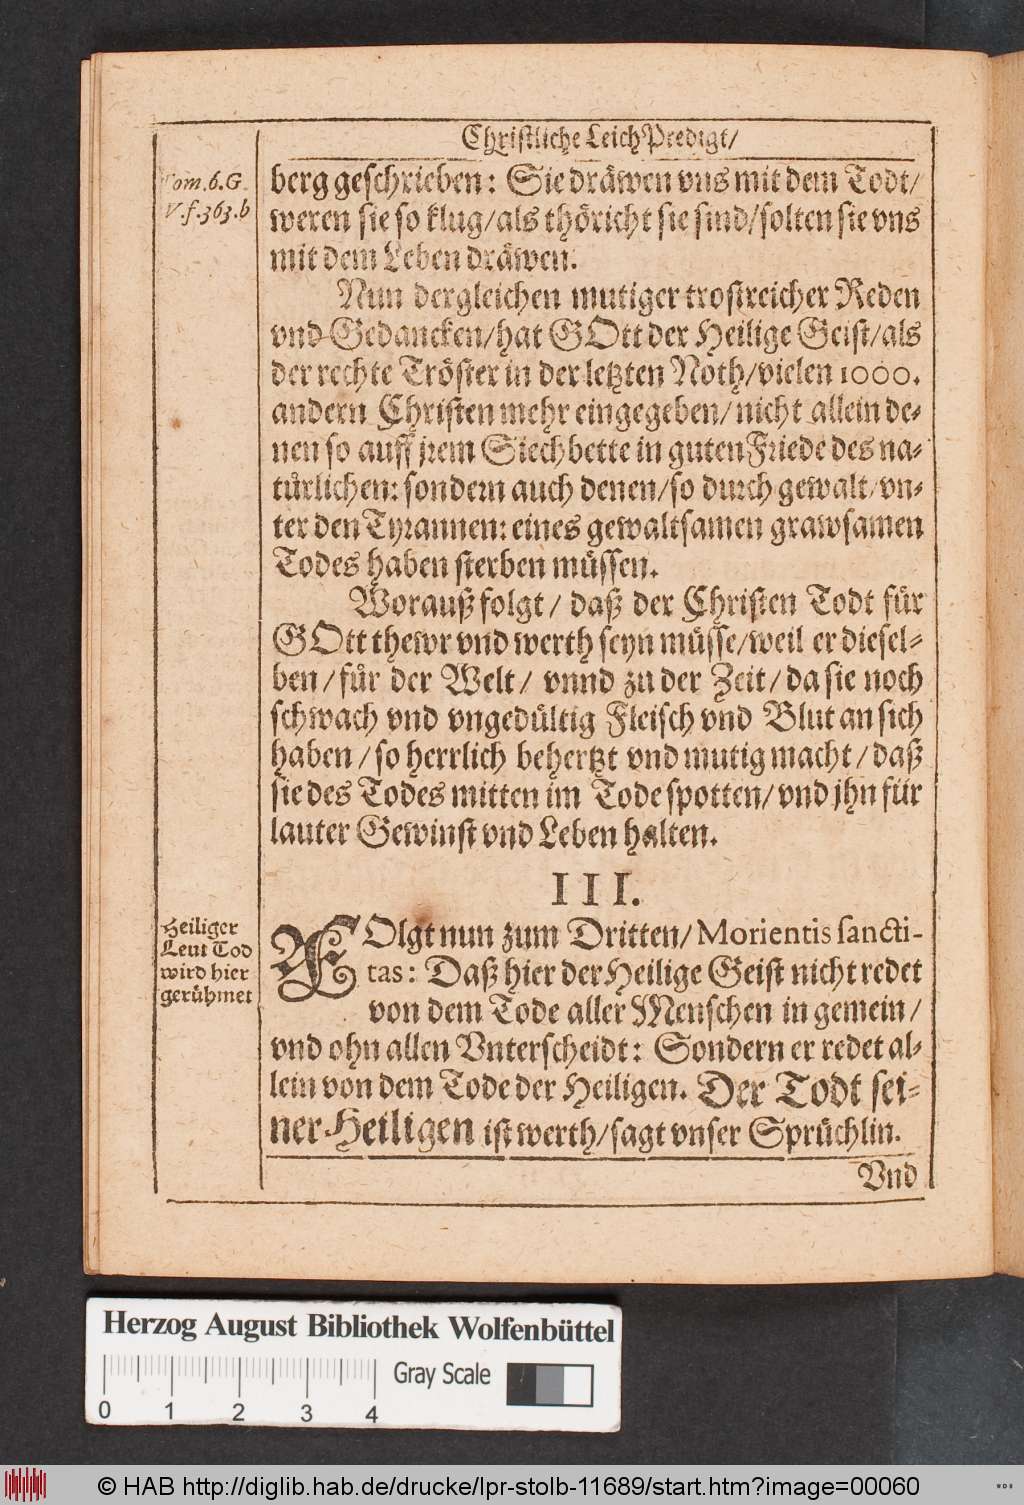 Christliche LeichPredigt/
Tom.6.G.
V.f.363.b
berg geschrieben: Sie dräwen vns mit dem Todt/
weren sie so klug/als thöricht sie sind/solten sie vns
mit dem Leben dräwen.
Nun dergleichen mutiger trostreicher Reden
vnd Gedancken/hat GOtt der Heilige Geist/als
der rechte Tröster in der letzten Noth/vielen 1000.
andern Christen mehr eingegeben/nicht allein de-
nen so auff jrem Siechbette in guten Friede des na-
türlichen: sondern auch denen/so durch gewalt/vn-
ter den Tyrannen: eines gewaltsamen grawsamen
Todes haben sterben müssen.
Worauß folgt/ daß der Christen Todt für
GOtt thewr vnd werth seyn müsse/weil er diesel-
ben/für der Welt/ vnnd zu der Zeit/da sie noch
schwach vnd vngedültig Fleisch vnd Blut an sich
haben/so herrlich behertzt vnd mutig macht/daß
sie des Todes mitten im Tode spotten/vnd jhn für
lauter Gewinst vnd Leben halten.
III.
Heiliger
Leut Tod
wird hier
gerühmet
FOlgt nun zum Dritten/Morientis sancti-
tas: Daß hier der Heilige Geist nicht redet
von dem Tode aller Menschen in gemein/
vnd ohn allen Vnterscheidt: Sondern er redet al-
lein von dem Tode der Heiligen. Der Todt sei-
ner Heiligen ist werth/sagt vnser Sprüchlin.
Vnd
Herzog August Bibliothek Wolfenbüttel
Gray Scale
0 1 2 3 4
© HAB http://diglib.hab.de/drucke/lpr-stolb-11689/start.htm?image=00060